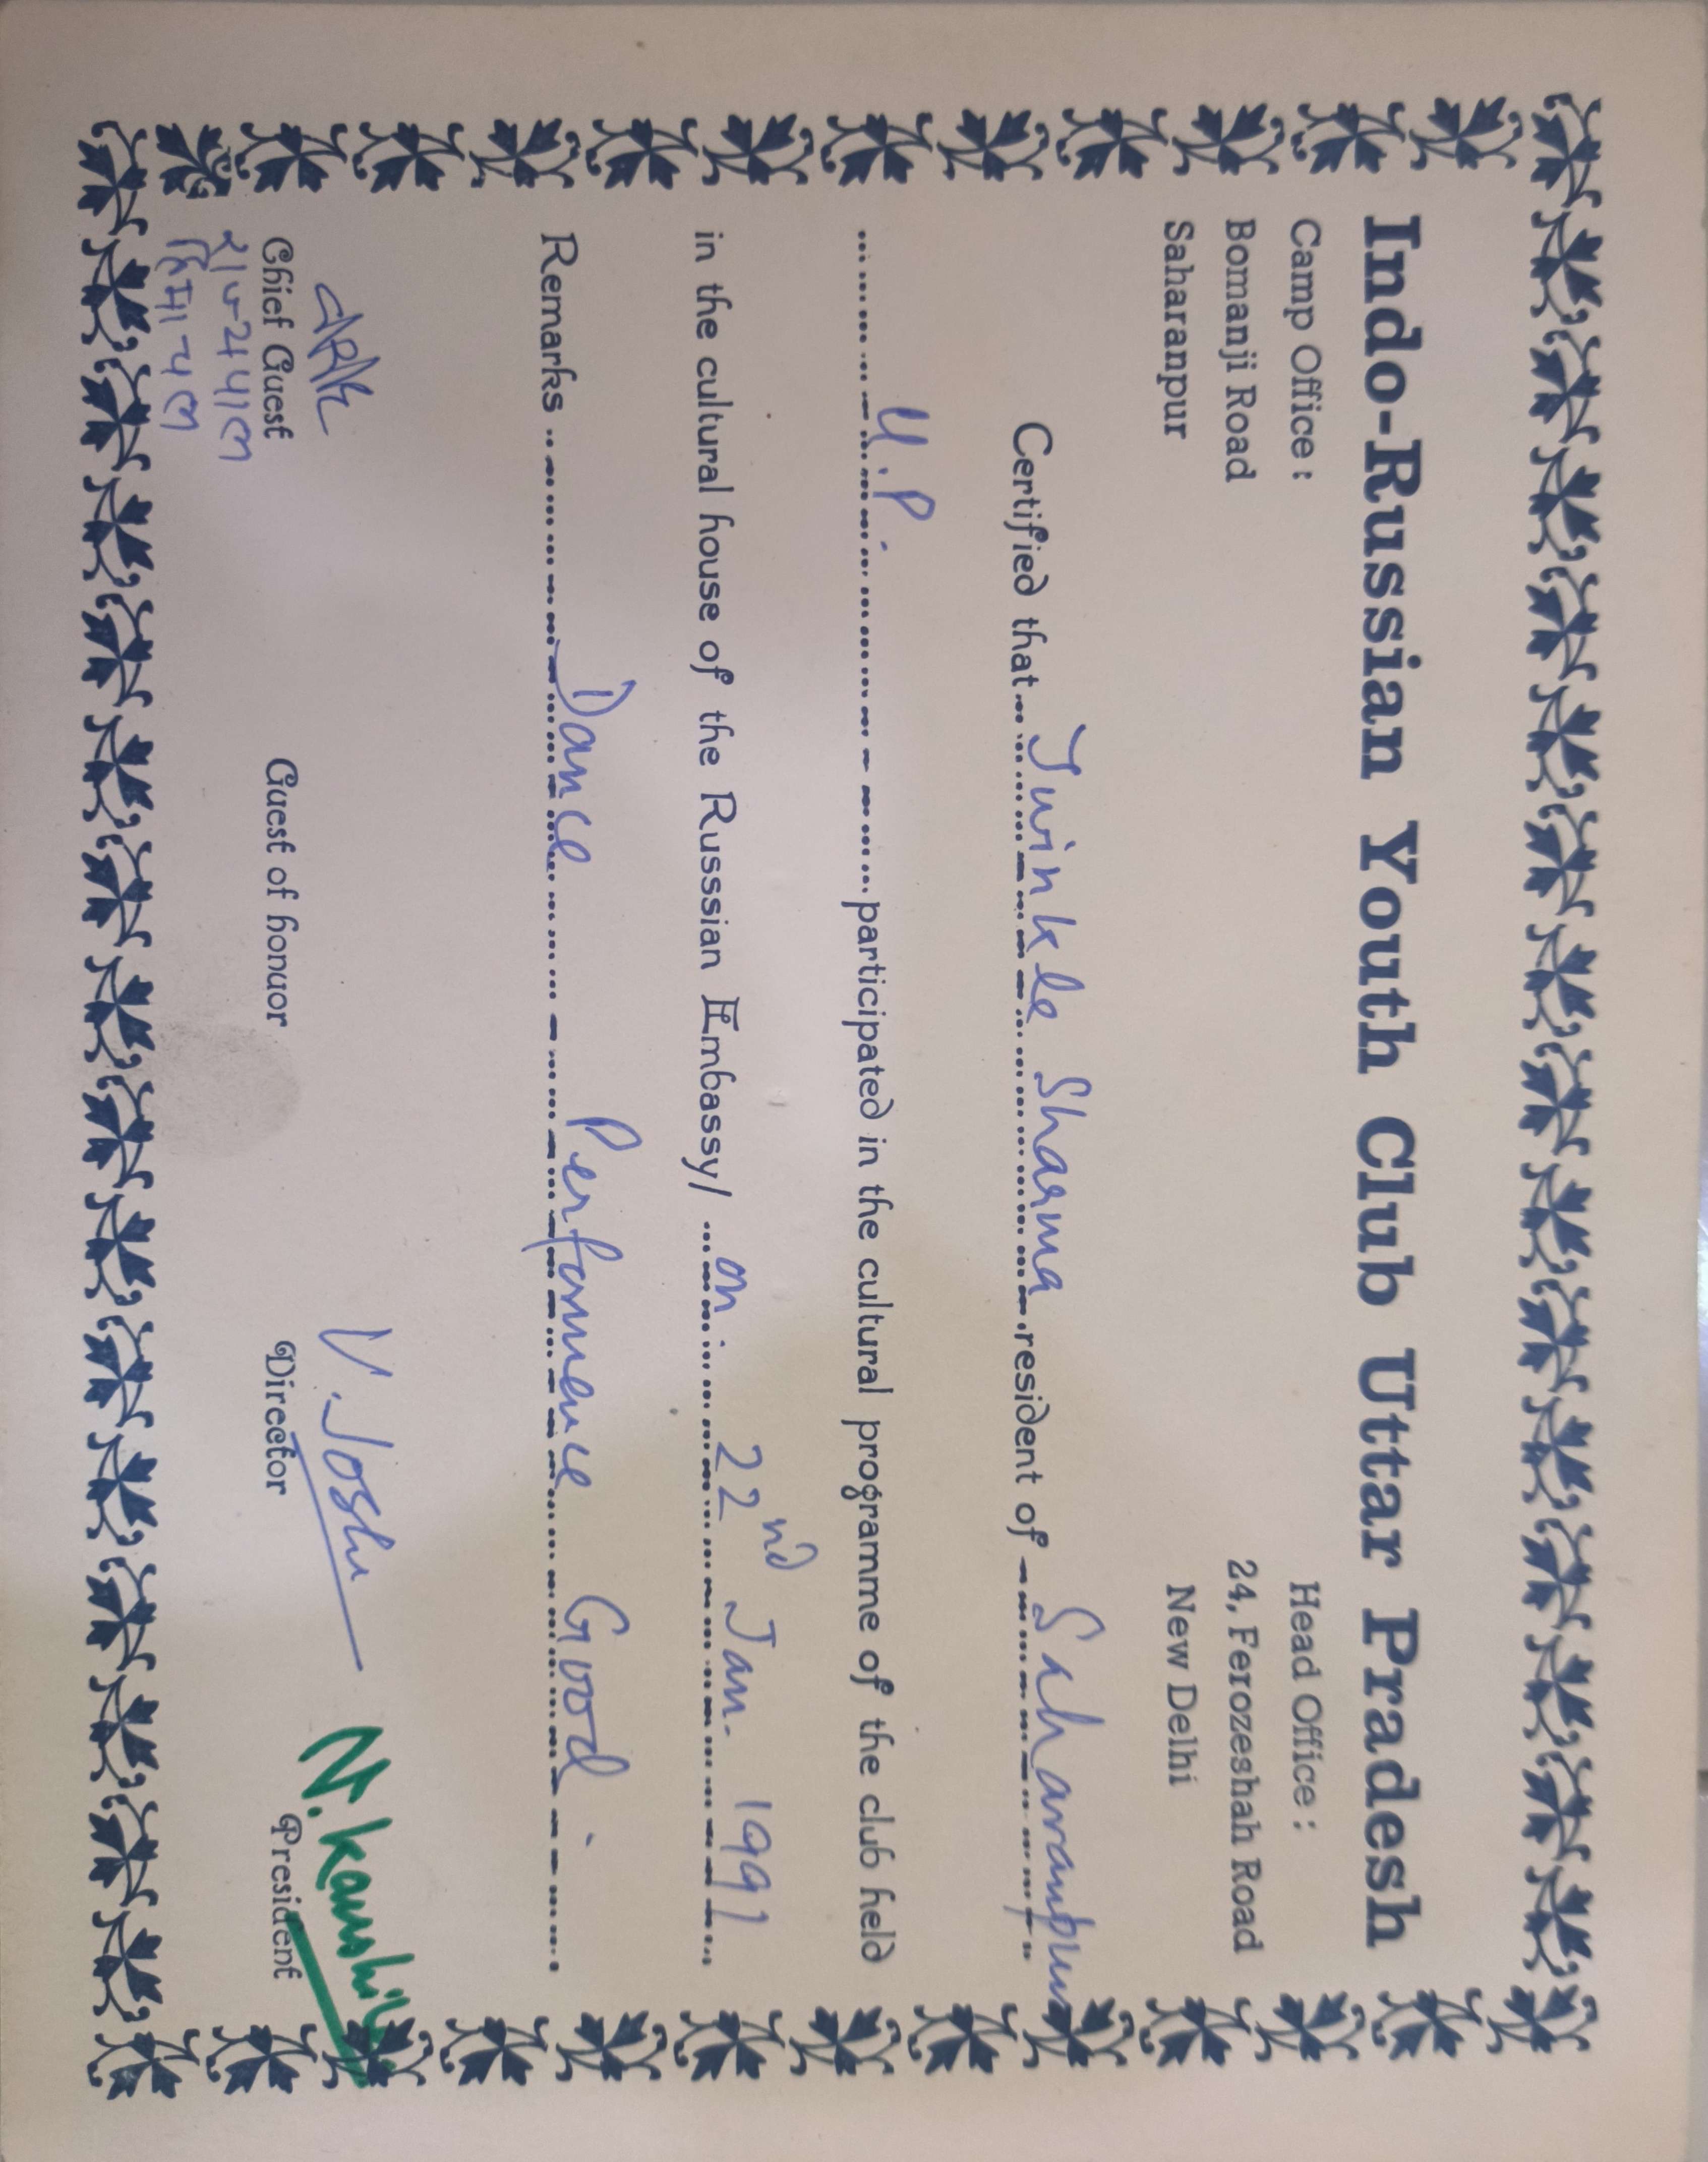 Indo-Russian Youth Club Uttar Pradesh
Camp Office :
Bomanji Road
Saharanpur
Head Office :
24, Ferozeshah Road
New Delhi
Certified that Twinkle Sharma resident of Saharanpur
U.P. participated in the cultural programme of the club held
in the cultural house of the Russsian Embassy/ on 22nd Jan. 1991
Remarks Dance Performence Good
V. Joshi
N. Kaushik
Chief Guest
Guest of honuor
Director
President
राज्यपाल
हिमाचल